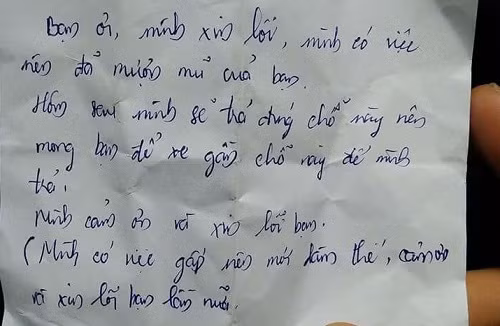 Bạn ơi, mình xin lỗi, mình có việc
nên đã mượn mũ của bạn.
Hôm sau mình sẽ trả đúng chỗ này nên
mong bạn để xe gần chỗ này để mình
trả.
Mình cảm ơn và xin lỗi bạn.
(Mình có việc gấp nên mới làm thế, cảm ơn
và xin lỗi bạn lần nữa.